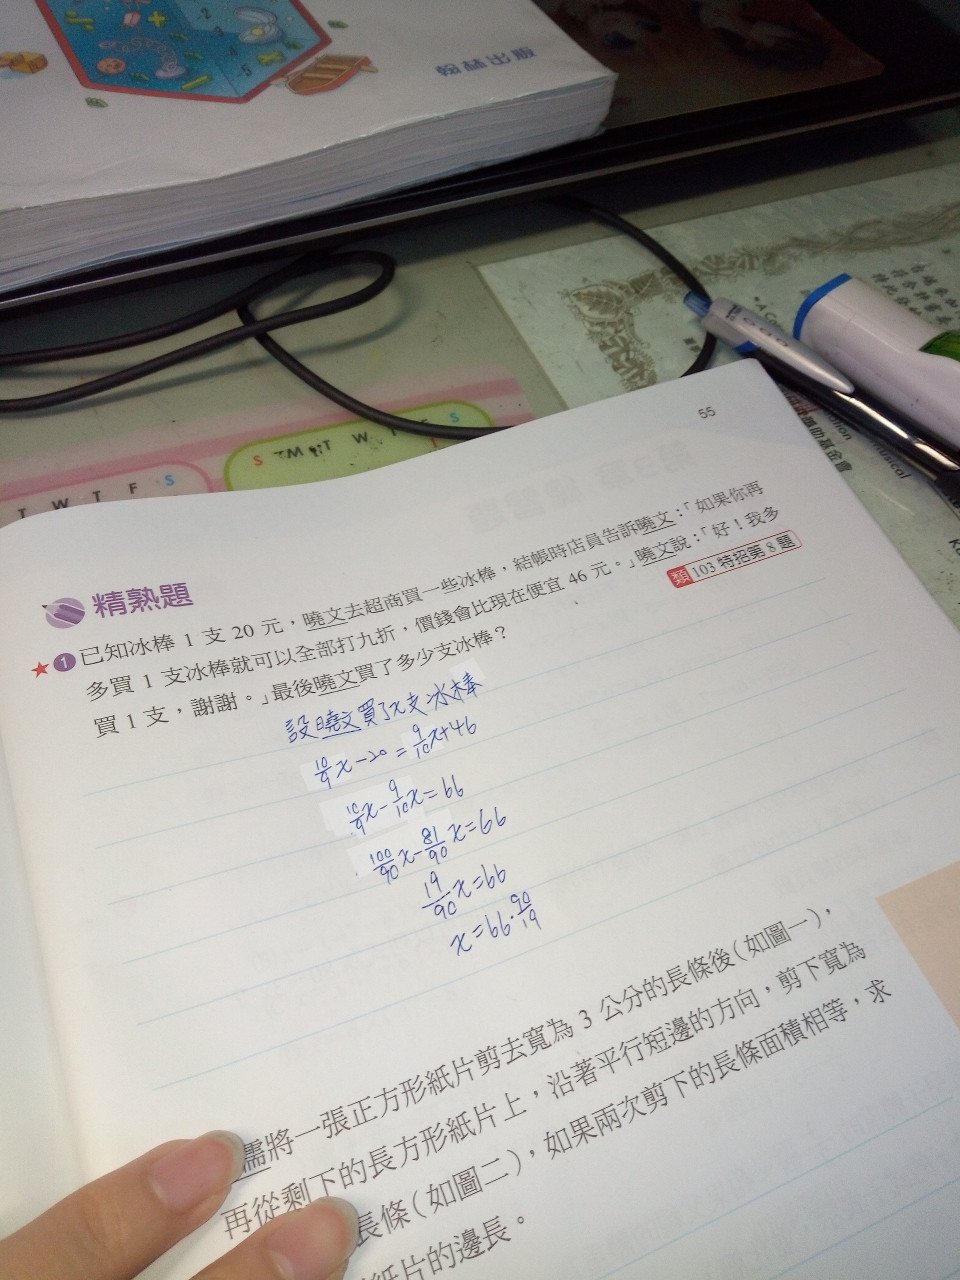 翰林出版
-2
-3
-4
-5
T W T F S
S M T W T F S
55
精熟題
1 已知冰棒 1 支 20 元，曉文去超商買一些冰棒，結帳時店員告訴曉文：「如果你再
多買 1 支冰棒就可以全部打九折，價錢會比現在便宜 46 元。」曉文說：「好！我多
買 1 支，謝謝。」最後曉文買了多少支冰棒？
類 103 特招第 8 題
設曉文買了x支冰棒
10/9 x-20=9/10 x+46
10/9 x-9/10 x=66
100/90 x-81/90 x=66
19/90 x=66
x=66·90/19
儒將一張正方形紙片剪去寬為 3 公分的長條後(如圖一)，
再從剩下的長方形紙片上，沿著平行短邊的方向，剪下寬為
長條(如圖二)，如果兩次剪下的長條面積相等，求
紙片的邊長。